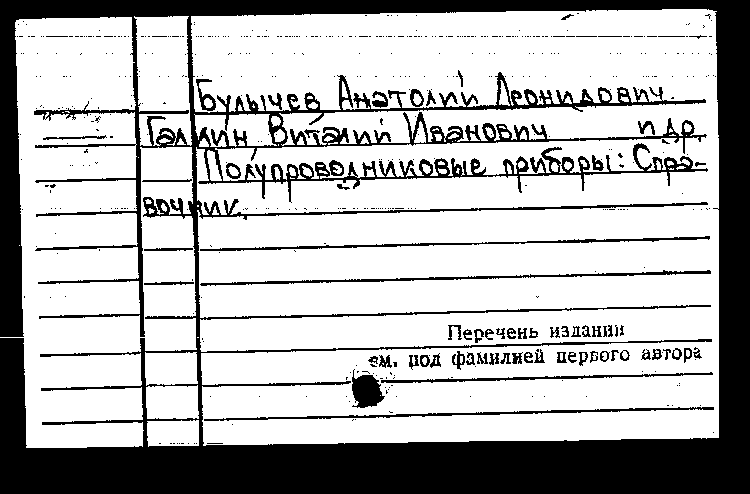 Булычев Анатолий Леонидович.
Галкин Виталий Иванович и др.
Полупроводниковые приборы: Спра-
вочник.
Перечень издании
см. под фамилией первого автора